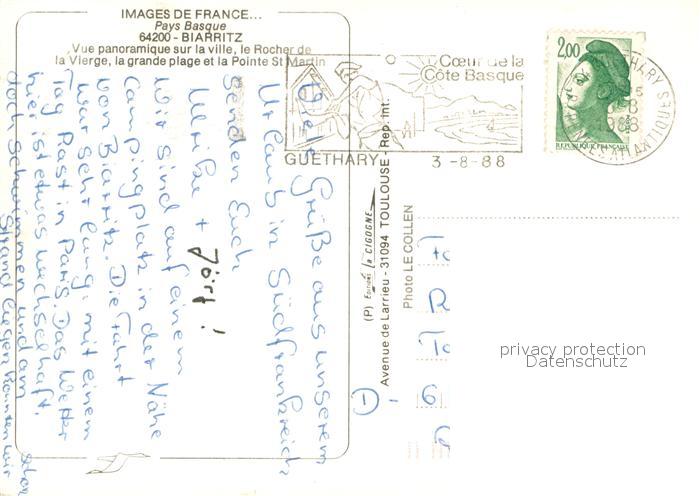 IMAGES DE FRANCE...
Pays Basque
64200 - BIARRITZ
Vue panoramique sur la ville, le Rocher de
la Vierge, la grande plage et la Pointe St Martin
Cœur de la
Côte Basque
GUETHARY
3 -8-88
2,00
REPUBLIQUE FRANÇAISE
GUETHARY
PYRENEES ATLANTIQUES
Viele Grüße aus unserem
Urlaub in Südfrankreich
senden Euch
Ulrike + Jörg!
Wir sind auf einem
Campingplatz in der Nähe
von Biarritz. Die Fahrt
war sehr lang, mit einem
Tag Rast in Paris. Das Wetter
hier ist etwas wechselhaft.
doch schwimmen und am
Strand liegen konnten wir
schon
(P) Editions la CIGOGNE
Avenue de Larrieu - 31094 TOULOUSE - Rep. int.
Photo LE COLLEN
privacy protection
Datenschutz